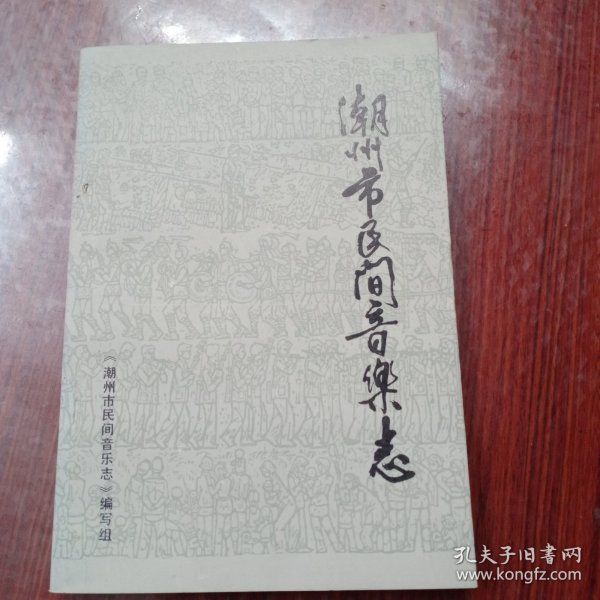 潮州市民间音樂志
《潮州市民间音乐志》编写组
孔夫子旧书网
www.kongfz.com